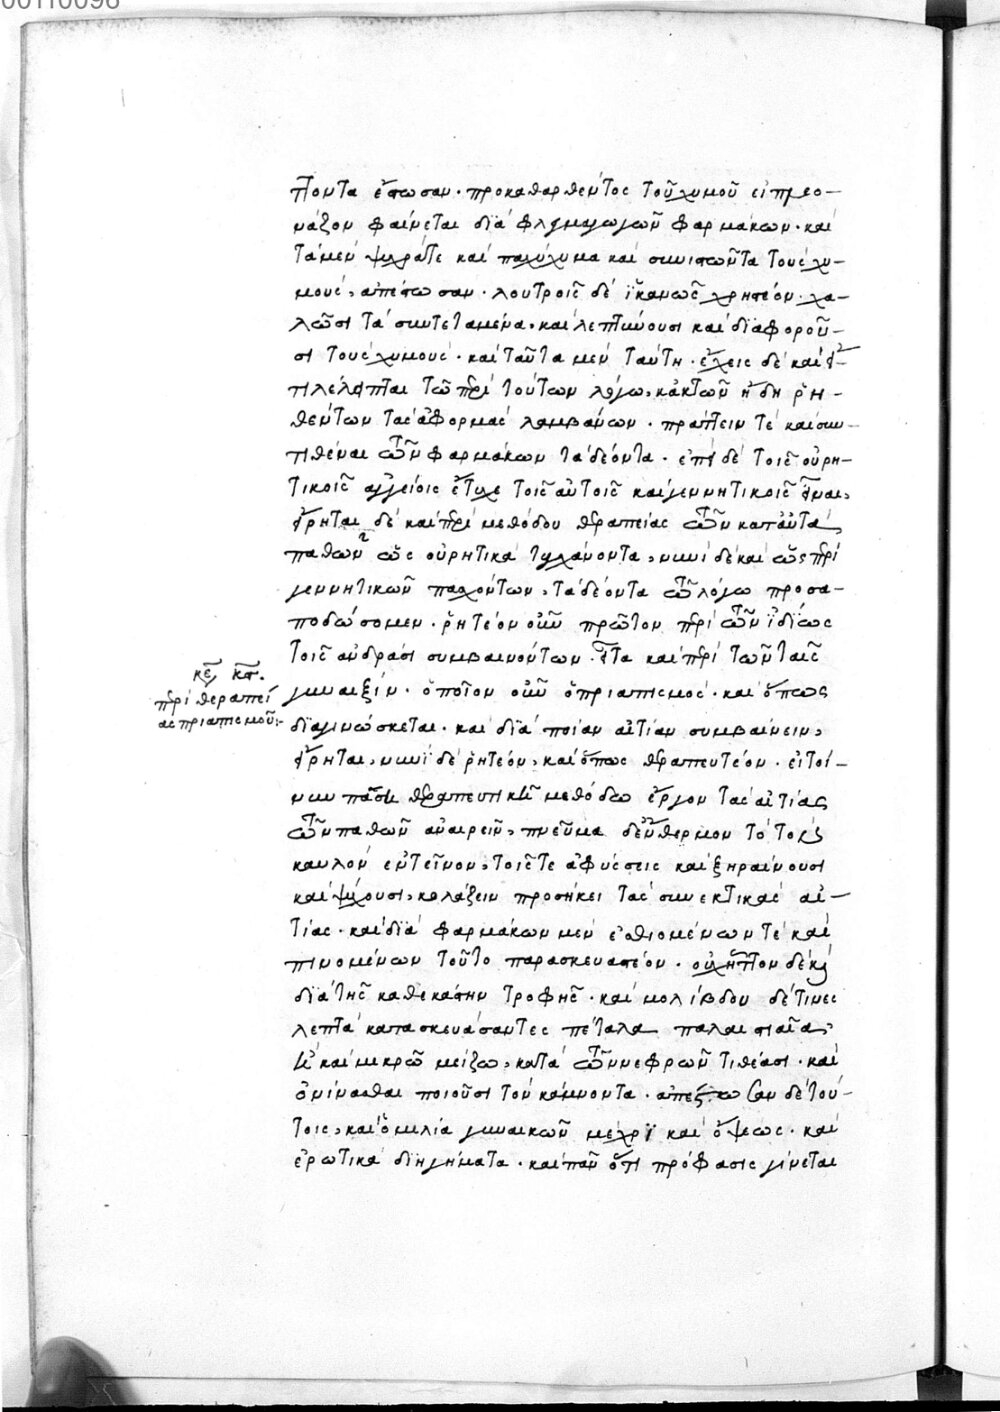 00110096
πτοντα ἔστωσαν· προκαθαρθέντος τοῦ χυμοῦ εἰ πλεο-
νάζον φαίνεται διὰ φλεγμαγωγῶν φαρμάκων· καὶ
τὰ μὲν ψυχρά τε καὶ παχύχυμα καὶ συνιστῶντα τοὺς χυ-
μοὺς, ἀπέστωσαν· λουτροῖς δὲ ἱκανῶς χρηστέον· χα-
λῶσι τὰ συντεταμένα· καὶ λεπτύνουσι καὶ διαφοροῦ-
σι τοὺς χυμούς· καὶ ταῦτα μὲν ταύτη· ἔχεις δὲ καὶ
τι λέλεπται τῶ περὶ τούτων λόγω, κἀκ τῶν ἤδη ῥη-
θέντων τὰς ἀφορμὰς λαμβάνων· πράττειν τὲ καὶ συν-
τιθέναι τῶν φαρμάκων τὰ δέοντα· ἐπεὶ δὲ τοῖς οὐρη-
τικοῖς ἀγγείοις ἔτυχε τοῖς αὐτοῖς καὶ γεννητικοῖς εἶναι,
εἴρηται δὲ καὶ περὶ μεθόδου θεραπείας τῶν κατ' αὐτὰ
παθῶν ᾗ ὡς οὐρητικὰ τυγχάνοντα, νυνὶ δὲ καὶ ὡς περὶ
γεννητικῶν πασχόντων, τὰ δέοντα τῶ λόγω προσα-
ποδώσομεν· ῥητέον οὖν πρῶτον περὶ τῶν ἰδίως
τοῖς ἀνδράσι συμβαινόντων· εἶτα καὶ περὶ τῶν ταῖς
κεφ κστ.
περὶ θεραπεί
ας πριαπισμοῦ:-
γυναιξίν· ὁποῖον οὖν ὁ πριαπισμὸς· καὶ ὅπως
διαγινώσκεται· καὶ διὰ ποίαν αἰτίαν συμβαίνειν,
εἴρηται, νυνὶ δὲ ῥητέον, καὶ ὅπως θεραπευτέον· εἰ τοί-
νυν πάση θεραπευτικῆ μεθόδω ἔργον τὰς αἰτίας
τῶν παθῶν ἀναιρεῖν, πνεῦμα δὲ θερμὸν τὸ τοὺς
καυλὸν ἐντεῖνον, τοῖς τε ἀφύσεις καὶ ξηραίνουσι
καὶ ψύχουσι, κολάζειν προσήκει τὰς συνεκτικὰς αἰ-
τίας· καὶ διὰ φαρμάκων μὲν ἐσθιομένων τὲ καὶ
πινομένων τοῦτο παρασκευαστέον· οὐχ ἧττον δὲ καὶ
διὰ τῆς καθεκάστην τροφῆς· καὶ μολίβδου δέ τινες
λεπτὰ κατασκευάσαντες πέταλα παλαιστιαῖα,
ἢ καὶ μικρῶ μείζω, κατὰ τῶν νεφρῶν τιθέασι· καὶ
ὀνίνασθαι ποιοῦσι τὸν κάμνοντα· ἀπέστωσαν δὲ τού-
τοις, καὶ ὁμιλία γυναικῶν μέχρι καὶ ὄψεως· καὶ
ἐρωτικὰ διηγήματα· καὶ πᾶν ὅτι πρόφασις γίνεται